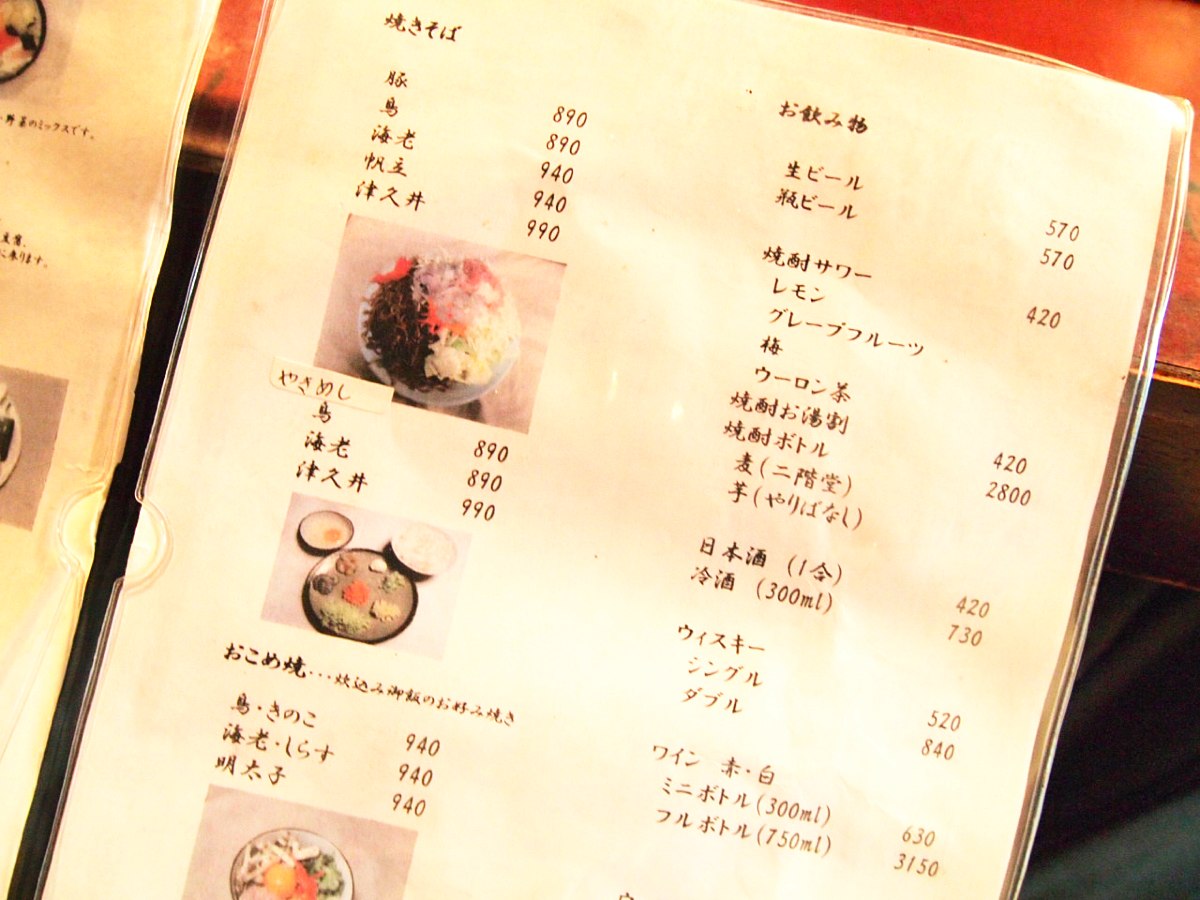 野菜のミックスです。
豆腐、
に来ります。
焼きそば
豚 890
鳥 890
海老 940
帆立 940
津久井 990
やきめし
鳥 890
海老 890
津久井 990
おこめ焼・・・炊込み御飯のお好み焼き
鳥・きのこ 940
海老・しらす 940
明太子 940
お飲み物
生ビール 570
瓶ビール 570
焼酎サワー 420
レモン
グレープフルーツ
梅
ウーロン茶
焼酎お湯割 420
焼酎ボトル 2800
麦(二階堂)
芋(やりばなし)
日本酒 (1合) 420
冷酒 (300ml) 730
ウィスキー
シングル 520
ダブル 840
ワイン 赤・白
ミニボトル(300ml) 630
フルボトル(750ml) 3150